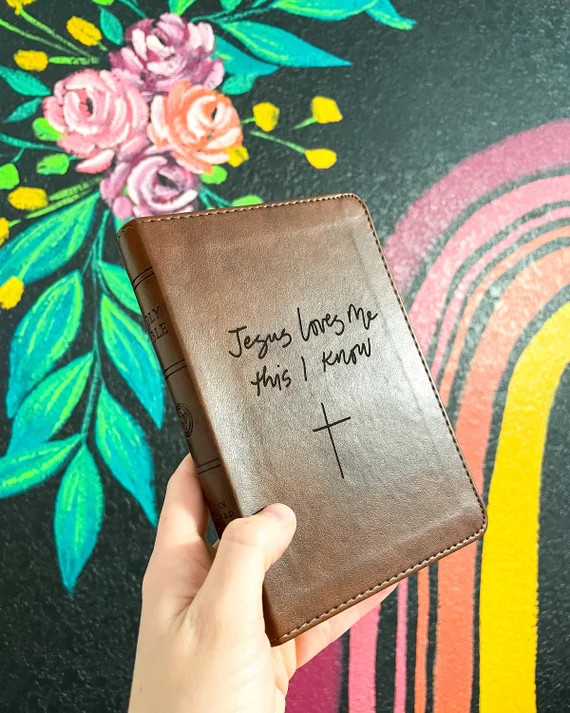 Jesus loves Me
this I know
HOLY
BIBLE